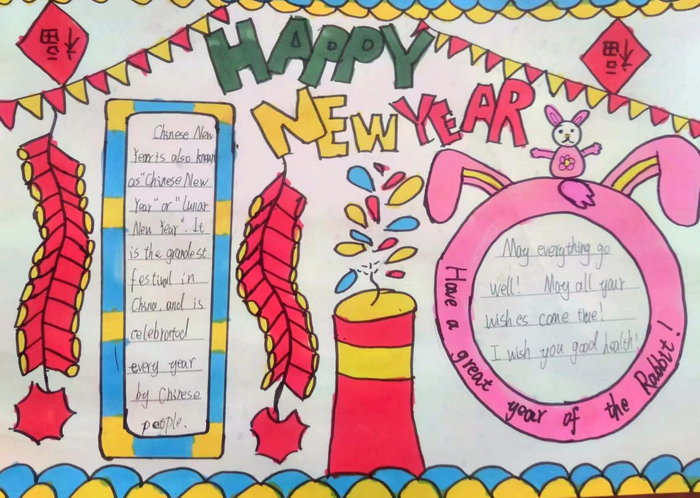 HAPPY
NEW YEAR
福
福
Chinese New
Year is also known
as "Chinese New
Year" or "Lunar
New Year". It
is the grandest
festival in
China, and is
celebrated
every year
by Chinese
people.
May everything go
well! May all your
wishes come true!
I wish you good health!
Have a great year of the Rabbit!